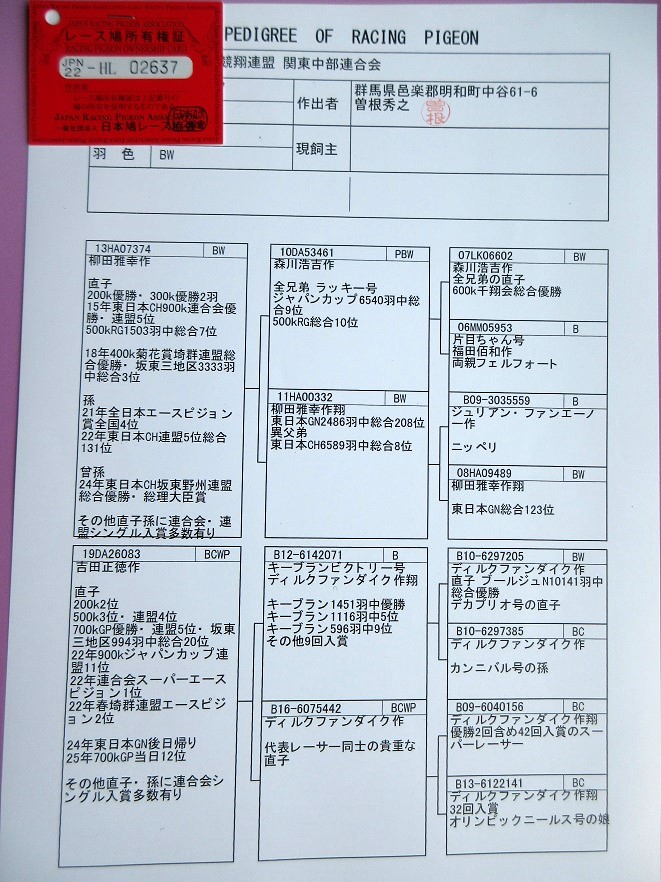 JAPAN RACING PIGEON ASSOCIATION
レース鳩所有権証
RACING PIGEON OWNERSHIP CARD
JPN
22 -HL 02637
JAPAN RACING PIGEON ASSO
一般社団法人 日本鳩レース協会
PEDIGREE OF RACING PIGEON
競翔連盟 関東中部連合会
作出者
群馬県邑楽郡明和町中谷61-6
曽根秀之
曽根
羽色
BW
現飼主
13HA07374 BW
柳田雅幸作
直子
200k優勝・300k優勝2羽
15年東日本CH900k連合会優
勝・連盟5位
500kRG1503羽中総合7位
18年400k菊花賞埼群連盟総
合優勝・坂東三地区3333羽
中総合3位
孫
21年全日本エースピジョン
賞全国4位
22年東日本CH連盟5位総合
131位
曾孫
24年東日本CH坂東野州連盟
総合優勝・総理大臣賞
その他直子孫に連合会・連
盟シングル入賞多数有り
10DA53461 PBW
森川浩吉作
全兄弟 ラッキー号
ジャパンカップ6540羽中総
合9位
500kRG総合10位
11HA00332 BW
柳田雅幸作翔
東日本GN2486羽中総合208位
異父弟
東日本CH6589羽中総合8位
07LK06602 BW
森川浩吉作
全兄弟の直子
600k千翔会総合優勝
06MM05953 B
片目ちゃん号
福田佰和作
両親フェルフォート
B09-3035559 B
ジュリアン・ファンエーノ
ー作
ニッペリ
08HA09489 BW
柳田雅幸作翔
東日本GN総合123位
19DA26083 BCWP
吉田正徳作
直子
200k2位
500k3位・連盟4位
700kGP優勝・連盟5位・坂東
三地区994羽中総合20位
22年900kジャパンカップ連
盟11位
22年連合会スーパーエース
ピジョン1位
22年春埼群連盟エースピジ
ョン2位
24年東日本GN後日帰り
25年700kGP当日12位
その他直子・孫に連合会シ
ングル入賞多数有り
B12-6142071 B
キーブランビクトリー号
ディルクファンダイク作翔
キーブラン1451羽中優勝
キーブラン1116羽中5位
キーブラン596羽中9位
その他9回入賞
B16-6075442 BCWP
ディルクファンダイク作
代表レーサー同士の貴重な
直子
B10-6297205 BW
ディルクファンダイク作翔
直子 ブールジュN10141羽中
総合優勝
デカプリオ号の直子
B10-6297385 BC
ディルクファンダイク作
カンニバル号の孫
B09-6040156 BC
ディルクファンダイク作翔
優勝2回含め42回入賞のスー
パーレーサー
B13-6122141 BC
ディルクファンダイク作翔
32回入賞
オリンピックニールス号の娘